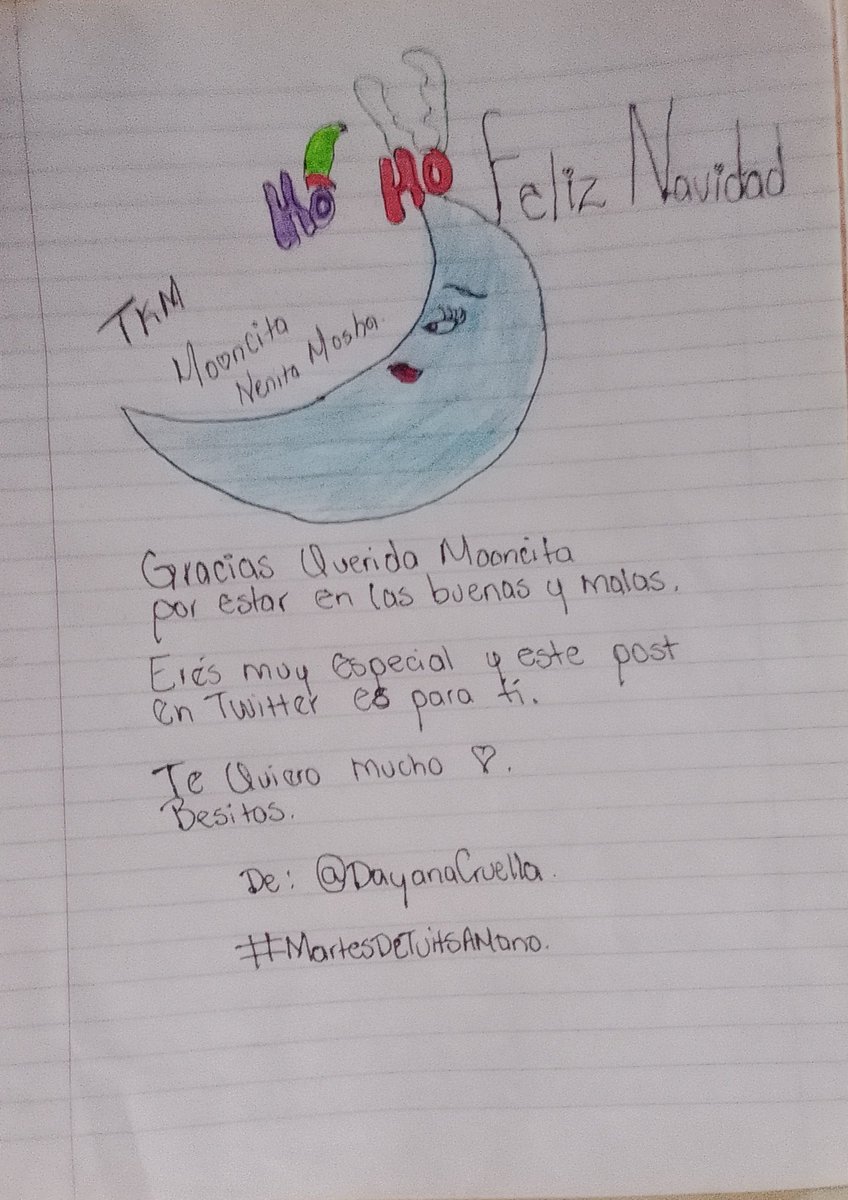 Ho Ho Feliz Navidad
TKM
Mooncita
Nenita Mosha
Gracias Querida Mooncita
por estar en las buenas y malas.
Erés muy especial y este post
en Twitter es para tí.
Te Quiero mucho ♡.
Besitos.
De: @DayanaCruella.
#MartesDeTuitsAMano.